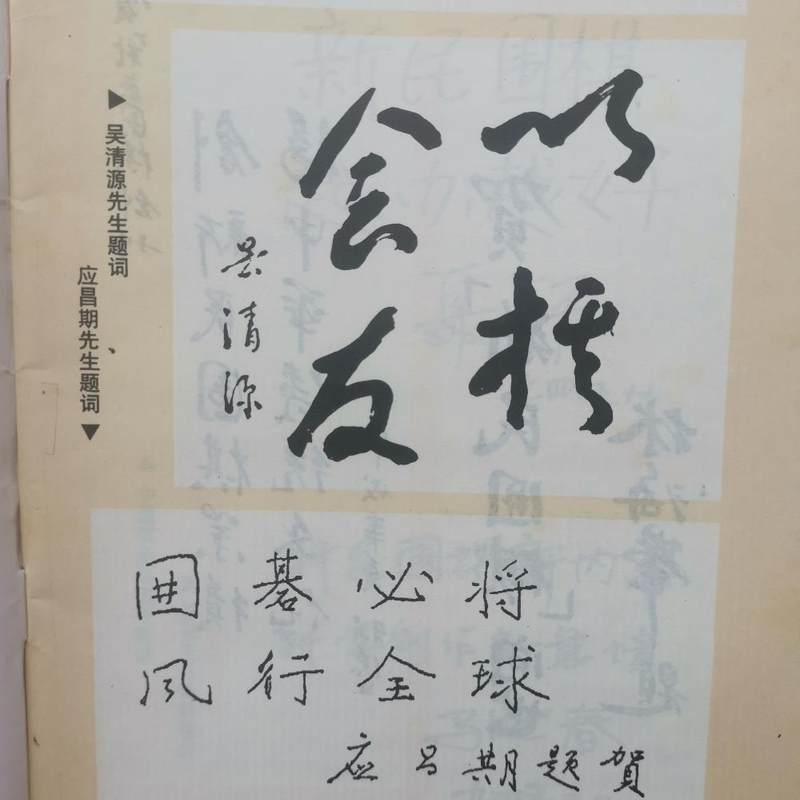 以棋
会友
吴清源
吴清源先生题词、
应昌期先生题词
囲碁必将
风行全球
应昌期题贺